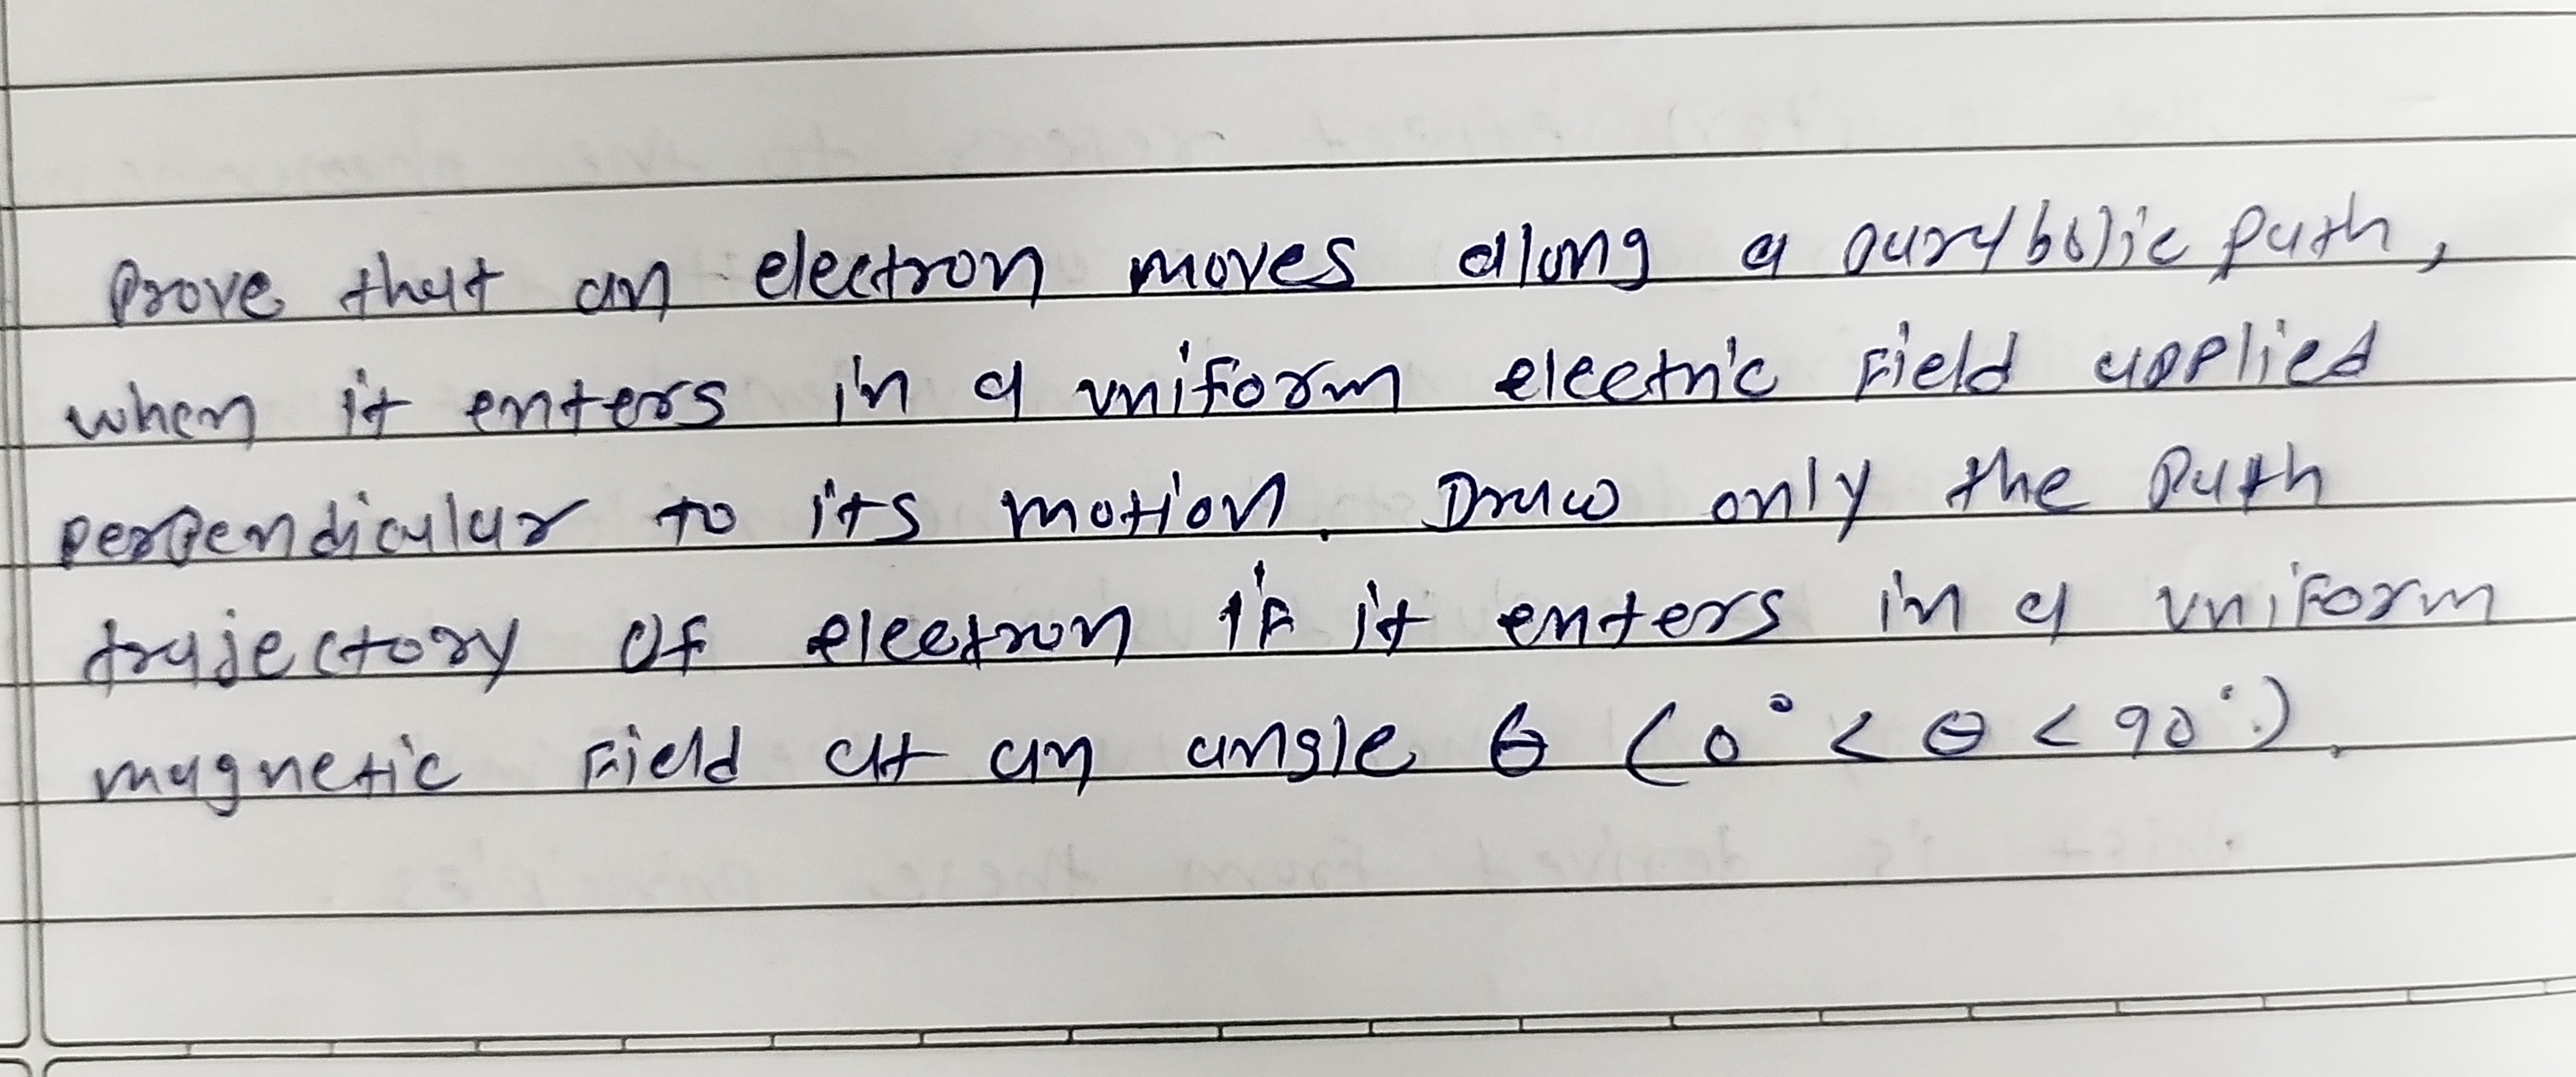 Prove that an electron moves along a parabolic path,
when it enters in a uniform electric field applied
perpendicular to its motion. Draw only the path
trajectory of electron if it enters in a uniform
magnetic field at an angle θ (0° < θ < 90°).